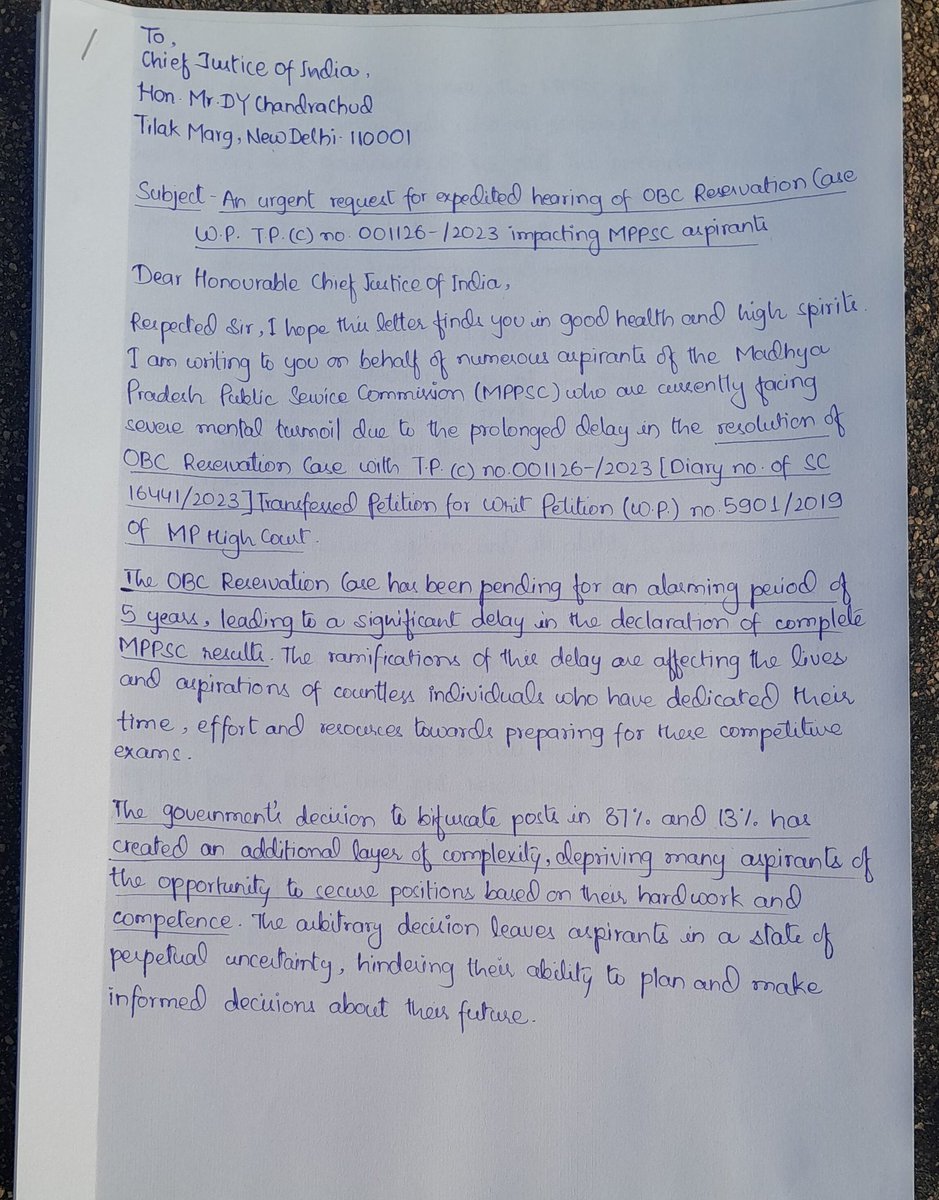 1
To,
Chief Justice of India,
Hon. Mr. DY Chandrachud
Tilak Marg, New Delhi-110001
Subject - An urgent request for expedited hearing of OBC Reservation Case
W.P. T.P. (C) no. 001126-/2023 impacting MPPSC aspirants
Dear Honourable Chief Justice of India,
Respected Sir, I hope this letter finds you in good health and high spirits.
I am writing to you on behalf of numerous aspirants of the Madhya
Pradesh Public Service Commission (MPPSC) who are currently facing
severe mental turmoil due to the prolonged delay in the resolution of
OBC Reservation Case with T.P. (C) no. 001126-/2023 [Diary no. of SC
16441/2023] Transferred Petition for Writ Petition (W.P.) no. 5901/2019
of MP High Court.
The OBC Reservation Case has been pending for an alarming period of
5 years, leading to a significant delay in the declaration of complete
MPPSC results. The ramifications of this delay are affecting the lives
and aspirations of countless individuals who have dedicated their
time, effort and resources towards preparing for these competitive
exams.
The government's decision to bifurcate posts in 87% and 13% has
created an additional layer of complexity, depriving many aspirants of
the opportunity to secure positions based on their hardwork and
competence. The arbitrary decision leaves aspirants in a state of
perpetual uncertainty, hindering their ability to plan and make
informed decisions about their future.